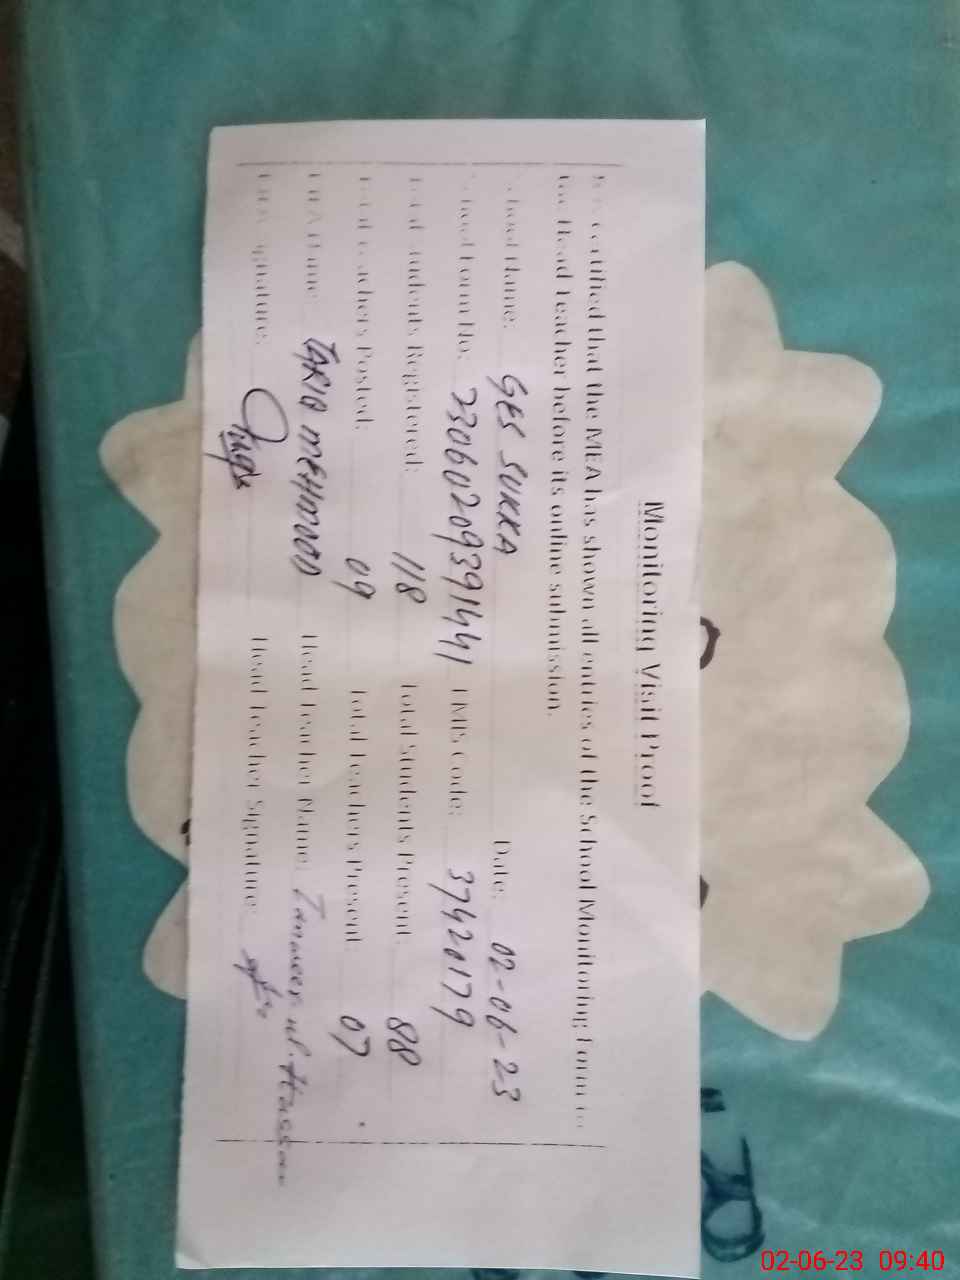 Monitoring Visit Proof
certified that the MEA has shown all entries of the School Monitoring Form to
the Head Teacher before its online submission.
School Name: GES SUKKA Date: 02-06-23
School Form No: Code: 37420179
Total Students Registered: 118 Total Students Present: 88
Total Teachers Posted: 09 Total Teachers Present: 07
MEA Name: TARIQ MEHMOOD Head Teacher Name: ul Hassan
MEA Signature: Head Teacher Signature:
02-06-23 09:40